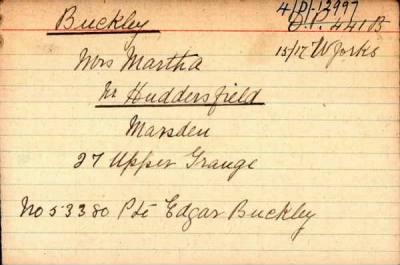 4/D/12997
Buckley
D.P. 441B
15/17 W Yorks
Mrs Martha
Nr Huddersfield
Marsden
27 Upper Grange
No 53380 Pte Edgar Buckley